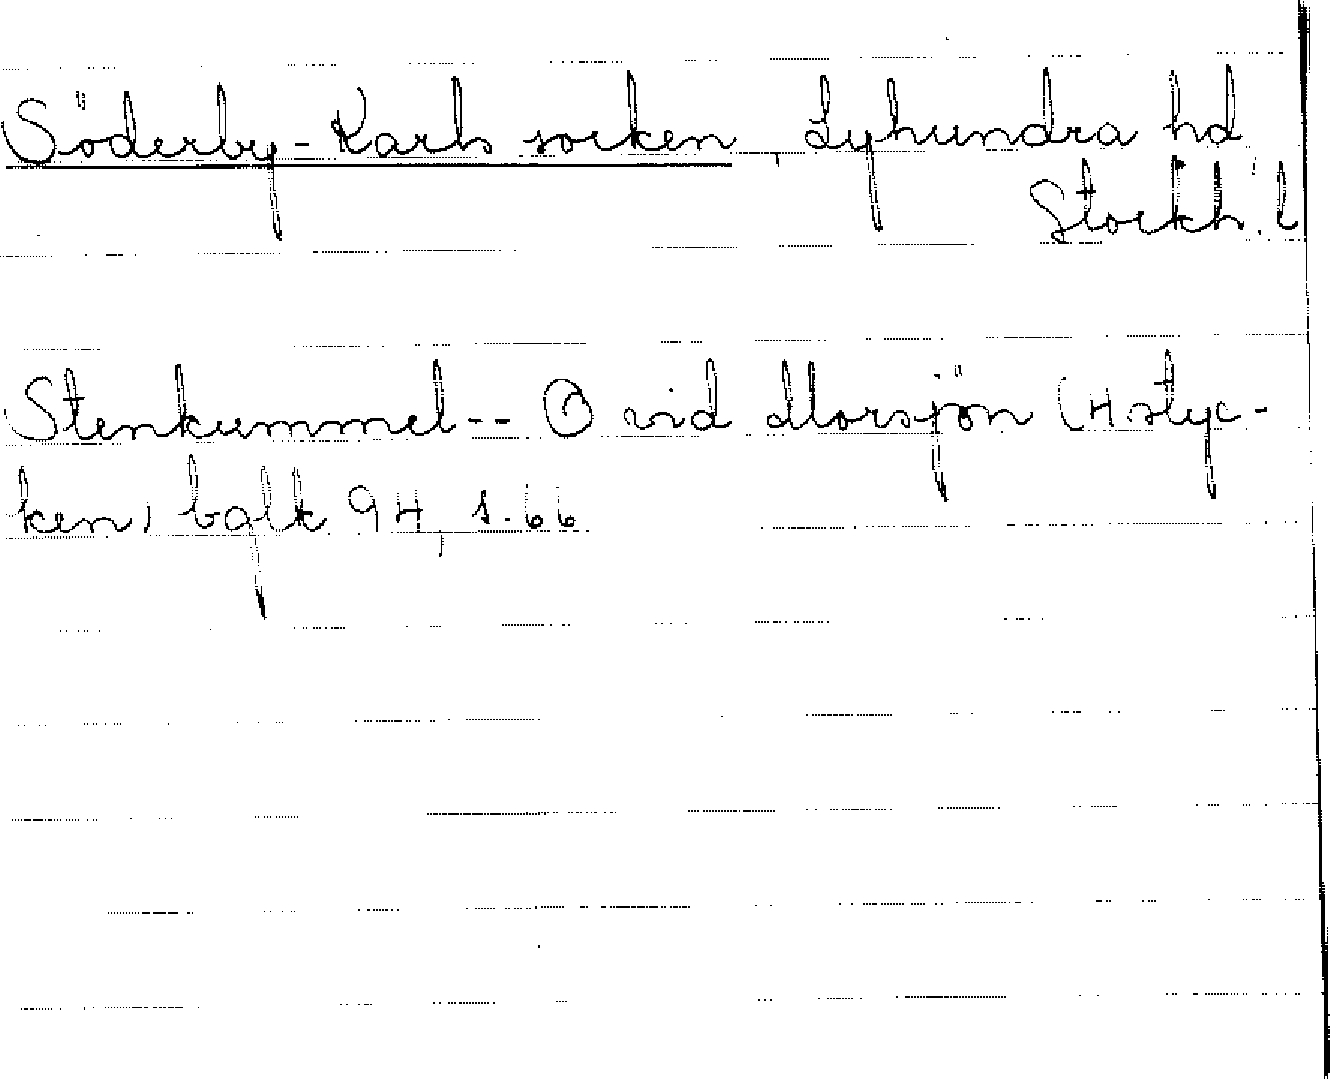 Söderby-Karls socken, Lyhundra hd,
Stockh. l
Stenkummel-- Ö vid Morsjön (4 styc-
ken) bqlk 94, s. 66